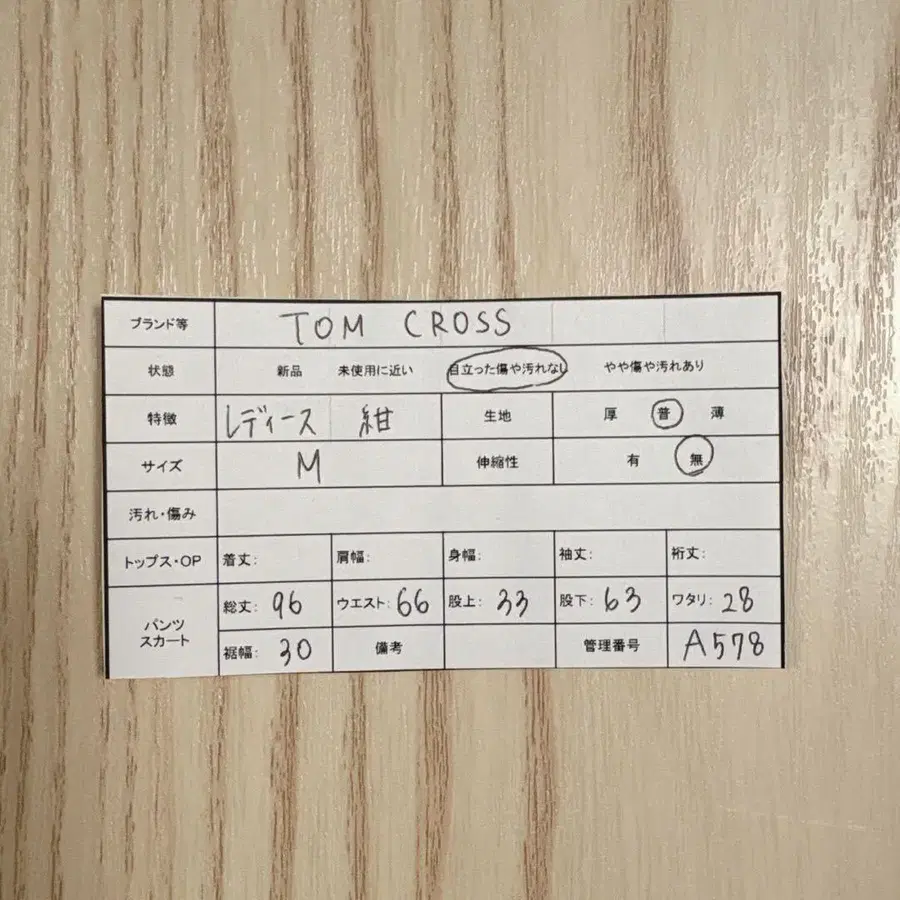 ブランド等 TOM CROSS
状態 新品 未使用に近い 目立った傷や汚れなし やや傷や汚れあり
特徴 レディース 紺 生地 厚 普 薄
サイズ M 伸縮性 有 無
汚れ・傷み
トップス・OP 着丈: 肩幅: 身幅: 袖丈: 裄丈:
パンツ スカート 総丈: 96 ウエスト: 66 股上: 33 股下: 63 ワタリ: 28
裾幅: 30 備考 管理番号 A578